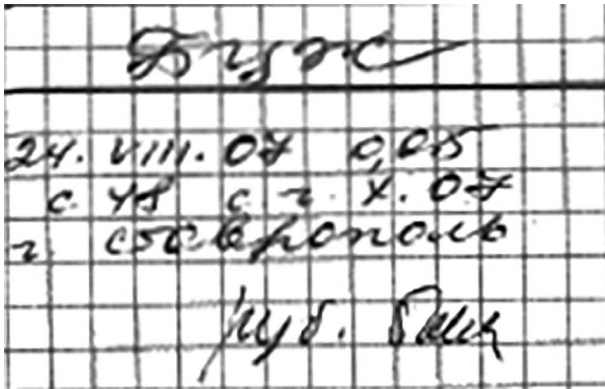 БЦЖ
24. VIII. 07 0,05
с. 48 с. г. X. 07
г. Ставрополь
туб. бак